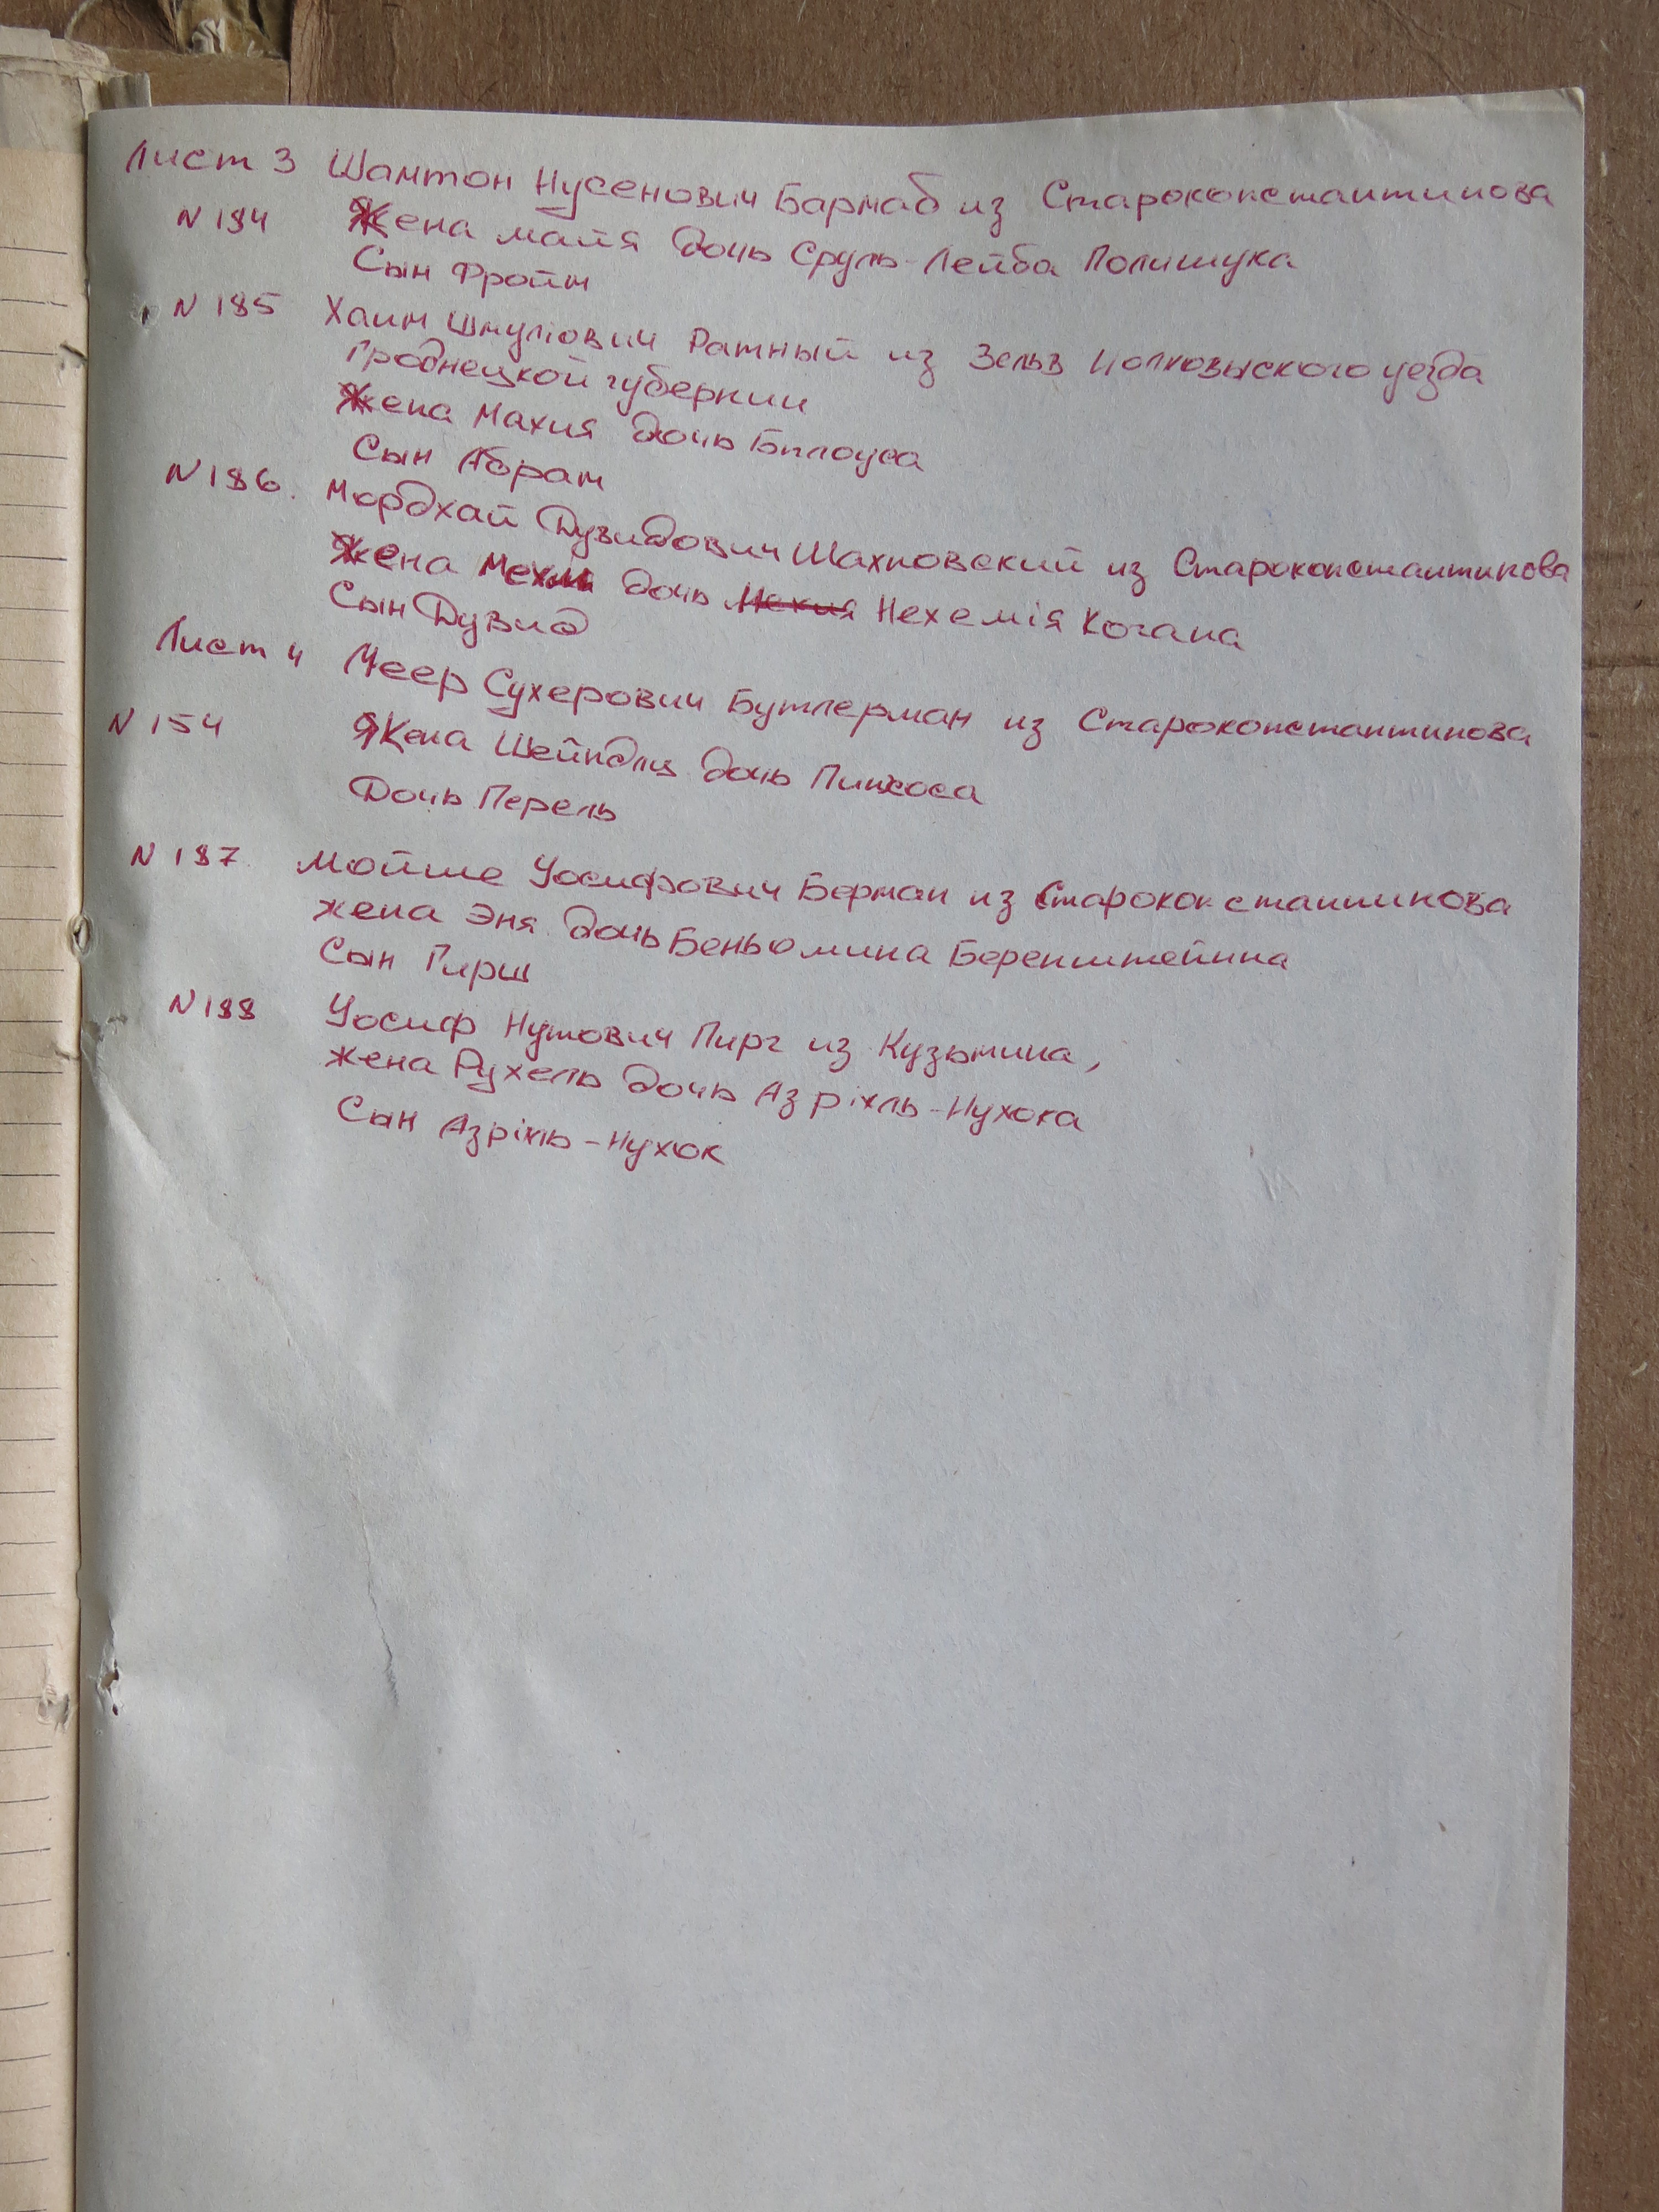 Лист 3 Шамтон Нусенович Бармаб из Староконстантинова
N 184 Жена майя дочь Сруль-Лейба Полищука
Сын Фройм
N 185 Хаим Шмулiович Ратный из Зельв Волковыского уезда
Гроднецкой губернии
Жена Махия дочь Билоуса
Сын Абрам
N 186. Мордхай Дувидович Шахновский из Староконстантинова
Жена дочь Нехемiя Когана
Сын Дувид
Лист 4 Меер Сухерович Бутлерман из Староконстантинова
N 154 Жена Шейндля дочь Пинхоса
Дочь Перель
N 187. Мойше Уосифович Берман из Староконстантинова
жена Эня дочь Беньомина Беренштейина
Сын Гирш
N 188 Уосиф Нутович Пирг из Кузьмина,
жена Рухель дочь Азрiхль-Нухока
Сын Азрiхль-Нухюк